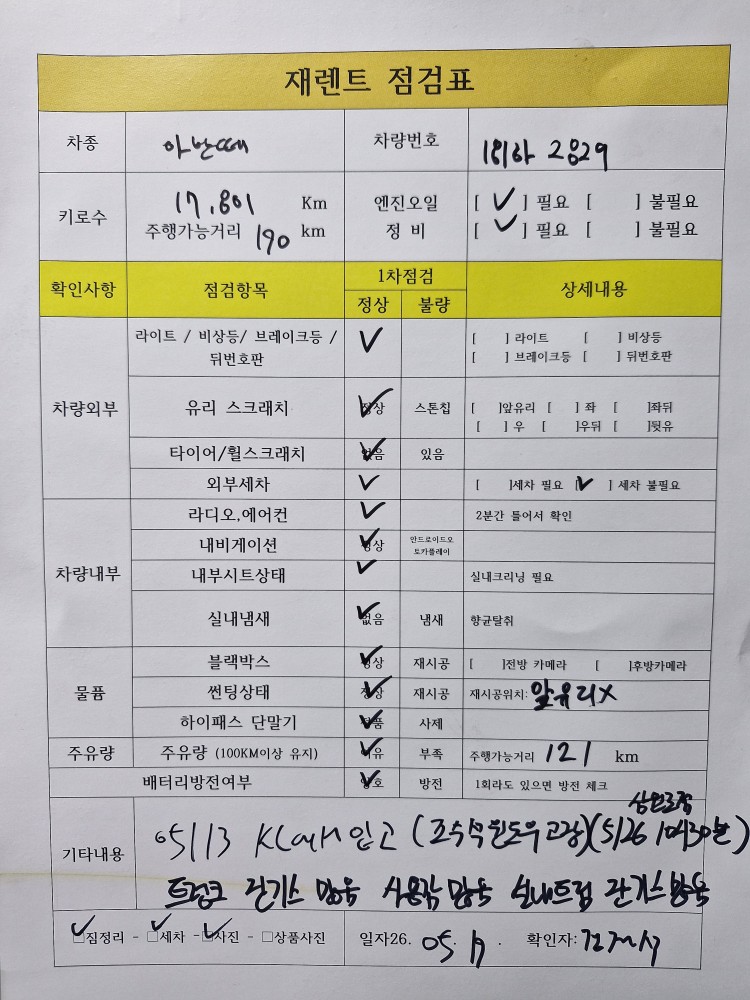 재렌트 점검표
차종 아반떼 차량번호 181하 2829
키로수 17,801 Km 엔진오일 [ ✓ ] 필요 [ ] 불필요
주행가능거리 190 km 정 비 [ ✓ ] 필요 [ ] 불필요
확인사항 점검항목 1차점검 상세내용
정상 불량
차량외부 라이트 / 비상등/ 브레이크등 / 뒤번호판 ✓ [ ] 라이트 [ ] 비상등
[ ] 브레이크등 [ ] 뒤번호판
유리 스크래치 정상 ✓ 스톤칩 [ ]앞유리 [ ] 좌 [ ]좌뒤
[ ] 우 [ ]우뒤 [ ]뒷유
타이어/휠스크래치 없음 ✓ 있음
외부세차 ✓ [ ]세차 필요 [✓ ] 세차 불필요
차량내부 라디오,에어컨 ✓ 2분간 틀어서 확인
내비게이션 정상 ✓ 안드로이드오토카플레이
내부시트상태 ✓ 실내크리닝 필요
실내냄새 없음 ✓ 냄새 향균탈취
물품 블랙박스 정상 ✓ 재시공 [ ]전방 카메라 [ ]후방카메라
썬팅상태 정상 ✓ 재시공 재시공위치: 앞유리X
하이패스 단말기 정품 ✓ 사제
주유량 주유량 (100KM이상 유지) ✓ 부족 주행가능거리 121 km
배터리방전여부 양호 ✓ 방전 1회라도 있으면 방전 체크
기타내용 05/13 입고 (조수석 윈도우 고장)(5/26 10시30분)
트렁크 잔기스 많음 사용감 많음 실내트림 잔기스 많음
✓ □짐정리 - ✓ □세차 - ✓ □사진 - □상품사진 일자26. 05. . 확인자: